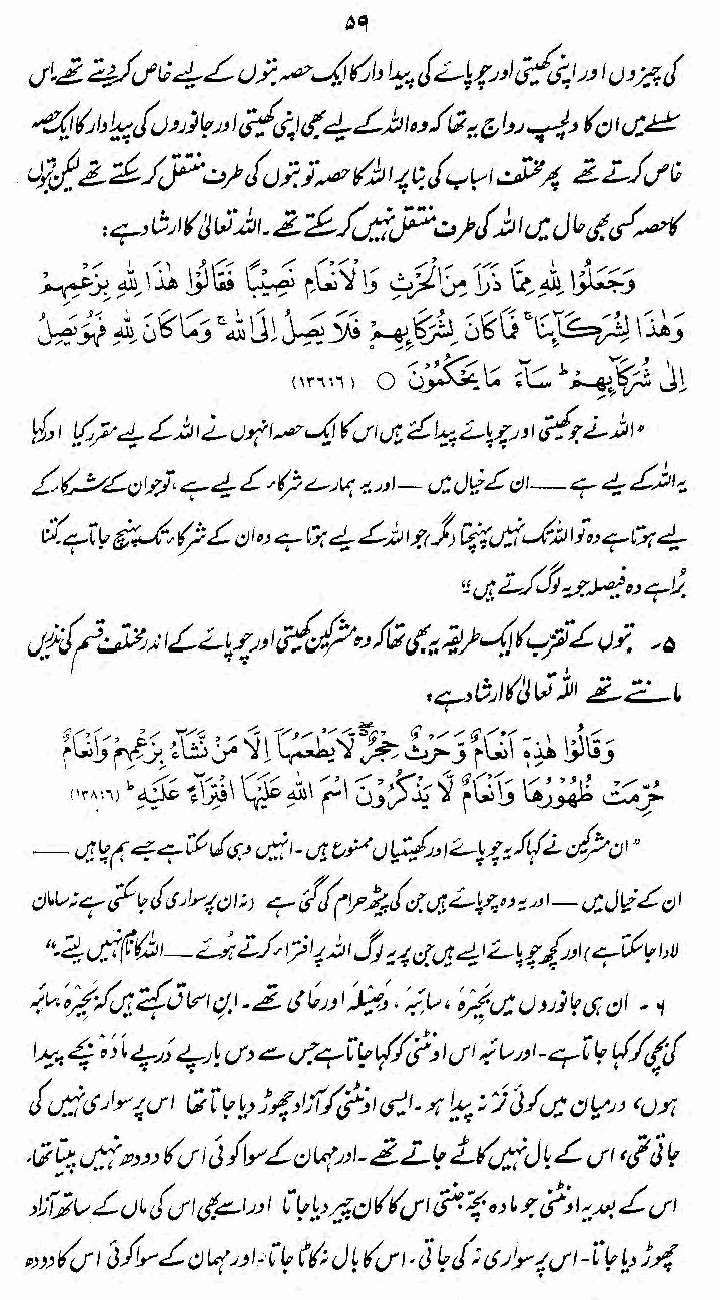 ۵۹
کی چیزوں اور اپنی کھیتی اور چوپائے کی پیداوار کا ایک حصہ بتوں کے لیے خاص کردیتے تھے۔ اس
سلسلے میں ان کا دلچسپ رواج یہ تھا کہ وہ اللہ کے لیے بھی اپنی کھیتی اور جانوروں کی پیداوار کا ایک حصہ
خاص کرتے تھے پھر مختلف اسباب کی بنا پر اللہ کا حصہ تو بتوں کی طرف منتقل کر سکتے تھے لیکن بتوں
کا حصہ کسی بھی حال میں اللہ کی طرف منتقل نہیں کر سکتے تھے۔ اللہ تعالیٰ کا ارشاد ہے:
وَجَعَلُوْا لِلّٰهِ مِمَّا ذَرَاَ مِنَ الْحَرْثِ وَالْاَنْعَامِ نَصِيْبًا فَقَالُوْا هٰذَا لِلّٰهِ بِزَعْمِهِمْ
وَهٰذَا لِشُرَكَآئِنَا ۚ فَمَا كَانَ لِشُرَكَآئِهِمْ فَلَا يَصِلُ اِلَى اللهِ ۚ وَمَا كَانَ لِلّٰهِ فَهُوَ يَصِلُ
اِلٰى شُرَكَآئِهِمْ ؕ سَآءَ مَا يَحْكُمُوْنَ ○ (۱۳۶:۶)
”اللہ نے جو کھیتی اور چوپائے پیدا کئے ہیں اس کا ایک حصہ انہوں نے اللہ کے لیے مقرر کیا اور کہا
یہ اللہ کے لیے ہے —— ان کے خیال میں — اور یہ ہمارے شرکاء کے لیے ہے، تو جو ان کے شرکاء کے
لیے ہوتا ہے وہ تو اللہ تک نہیں پہنچتا (مگر) جو اللہ کے لیے ہوتا ہے وہ ان کے شرکاء تک پہنچ جاتا ہے کتنا
بُرا ہے وہ فیصلہ جو یہ لوگ کرتے ہیں“
۵۔ بتوں کے تقرّب کا ایک طریقہ یہ بھی تھا کہ وہ مشرکین کھیتی اور چوپائے کے اندر مختلف قسم کی نذریں
مانتے تھے اللہ تعالیٰ کا ارشاد ہے:
وَقَالُوْا هٰذِهٖ اَنْعَامٌ وَّحَرْثٌ حِجْرٌ لَّا يَطْعَمُهَآ اِلَّا مَنْ نَّشَآءُ بِزَعْمِهِمْ وَاَنْعَامٌ
حُرِّمَتْ ظُهُوْرُهَا وَاَنْعَامٌ لَّا يَذْكُرُوْنَ اسْمَ اللهِ عَلَيْهَا افْتِرَآءً عَلَيْهِ ؕ (۱۳۸:۶)
”ان مشرکین نے کہا کہ یہ چوپائے اور کھیتیاں ممنوع ہیں۔ انہیں وہی کھا سکتا ہے جسے ہم چاہیں ——
ان کے خیال میں — اور یہ وہ چوپائے ہیں جن کی پیٹھ حرام کی گئی ہے (نہ ان پر سواری کی جاسکتی ہے نہ سامان
لادا جاسکتا ہے) اور کچھ چوپائے ایسے ہیں جن پر یہ لوگ اللہ پر افتراء کرتے ہُوئے — اللہ کا نام نہیں لیتے۔“
۶ - ان ہی جانوروں میں بَحِیْرَہ، سائبہ، وَصِیْلہ اور حَامی تھے۔ ابنِ اسحاق کہتے ہیں کہ بَحِیْرَہ، سائبہ
کی بچی کو کہا جاتا ہے۔ اور سائبہ اس اونٹنی کو کہا جاتا ہے جس سے دس بار پے دَرپے مَادَہ بچے پیدا
ہوں، درمیان میں کوئی نَر نہ پیدا ہو۔ ایسی اونٹنی کو آزاد چھوڑ دیا جاتا تھا اس پر سواری نہیں کی
جاتی تھی، اس کے بال نہیں کاٹے جاتے تھے۔ اور مہمان کے سوا کوئی اس کا دودھ نہیں پیتا تھا۔
اس کے بعد یہ اونٹنی جو مادہ بچّہ جنتی اس کا کان چیر دیا جاتا اور اسے بھی اس کی ماں کے ساتھ آزاد
چھوڑ دیا جاتا۔ اس پر سواری نہ کی جاتی۔ اس کا بال نہ کاٹا جاتا۔ اور مہمان کے سوا کوئی اس کا دودھ